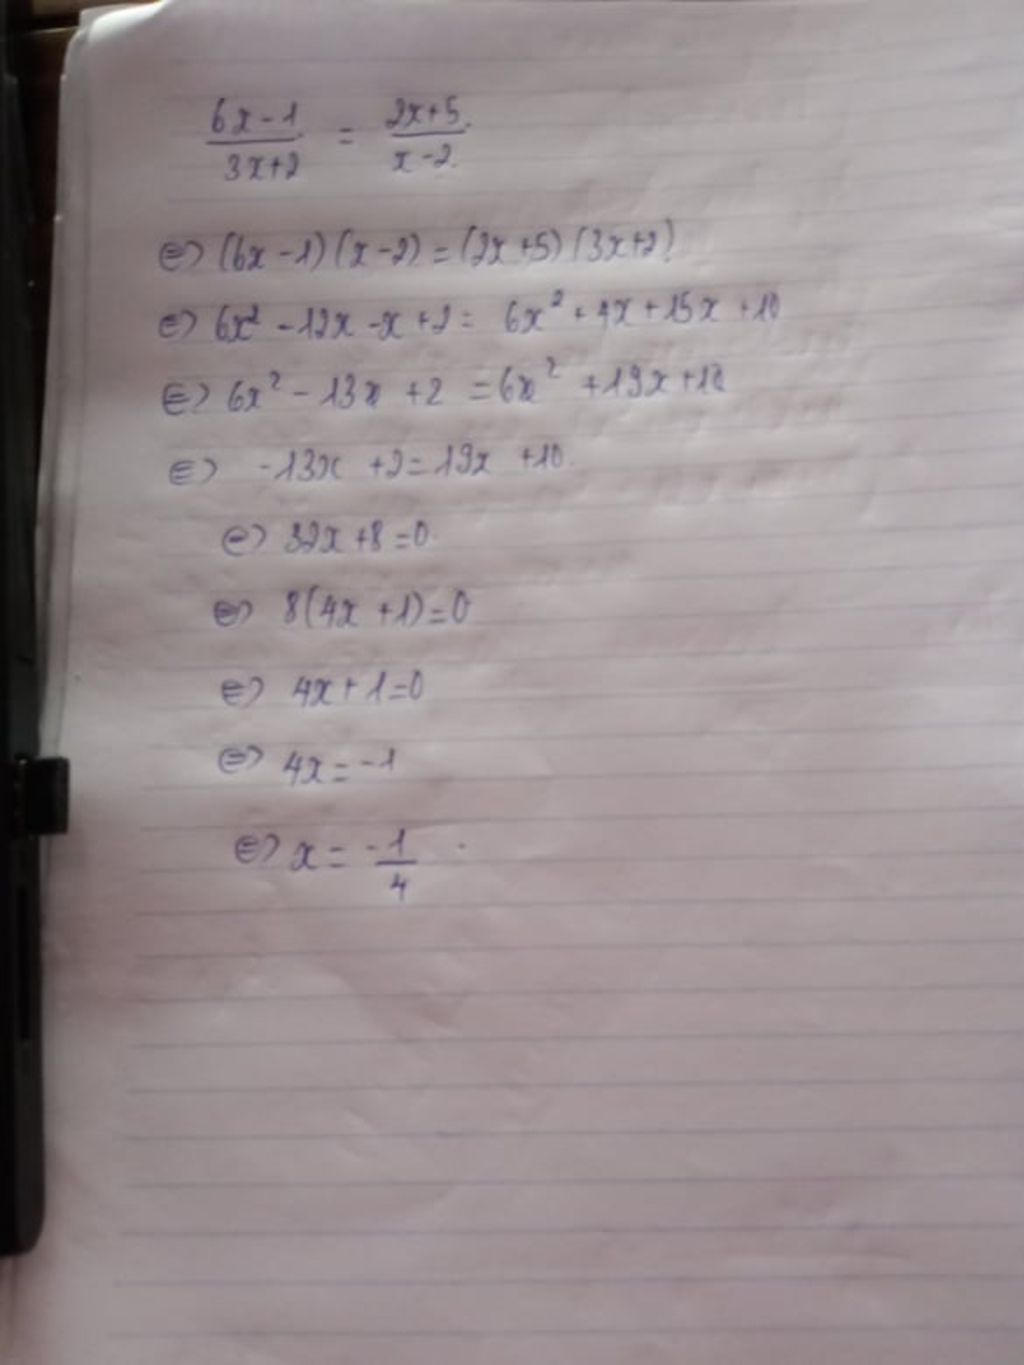 6x-1 / 3x+2 = 2x+5 / x-2
⇔ (6x-1)(x-2) = (2x+5)(3x+2)
⇔ 6x² - 12x - x + 2 = 6x² + 4x + 15x + 10
⇔ 6x² - 13x + 2 = 6x² + 19x + 10
⇔ -13x + 2 = 19x + 10
⇔ 32x + 8 = 0
⇔ 8(4x + 1) = 0
⇔ 4x + 1 = 0
⇔ 4x = -1
⇔ x = -1 / 4